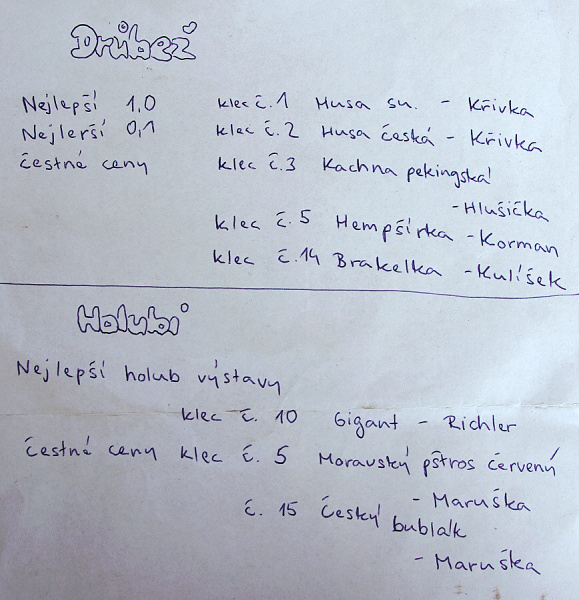 Drůbež
Nejlepší 1,0 klec č.1 Husa su. - Křivka
Nejlerší 0,1 klec č.2 Husa česká - Křivka
čestné ceny klec č.3 Kachna pekingská
- Hlušička
klec č.5 Hempšírka - Korman
klec č.14 Brakelka - Kulíšek
Holubi
Nejlepší holub výstavy
klec č. 10 Gigant - Richler
čestné ceny klec č. 5 Moravský pštros červený
- Maruška
č. 15 Český bublák
- Maruška